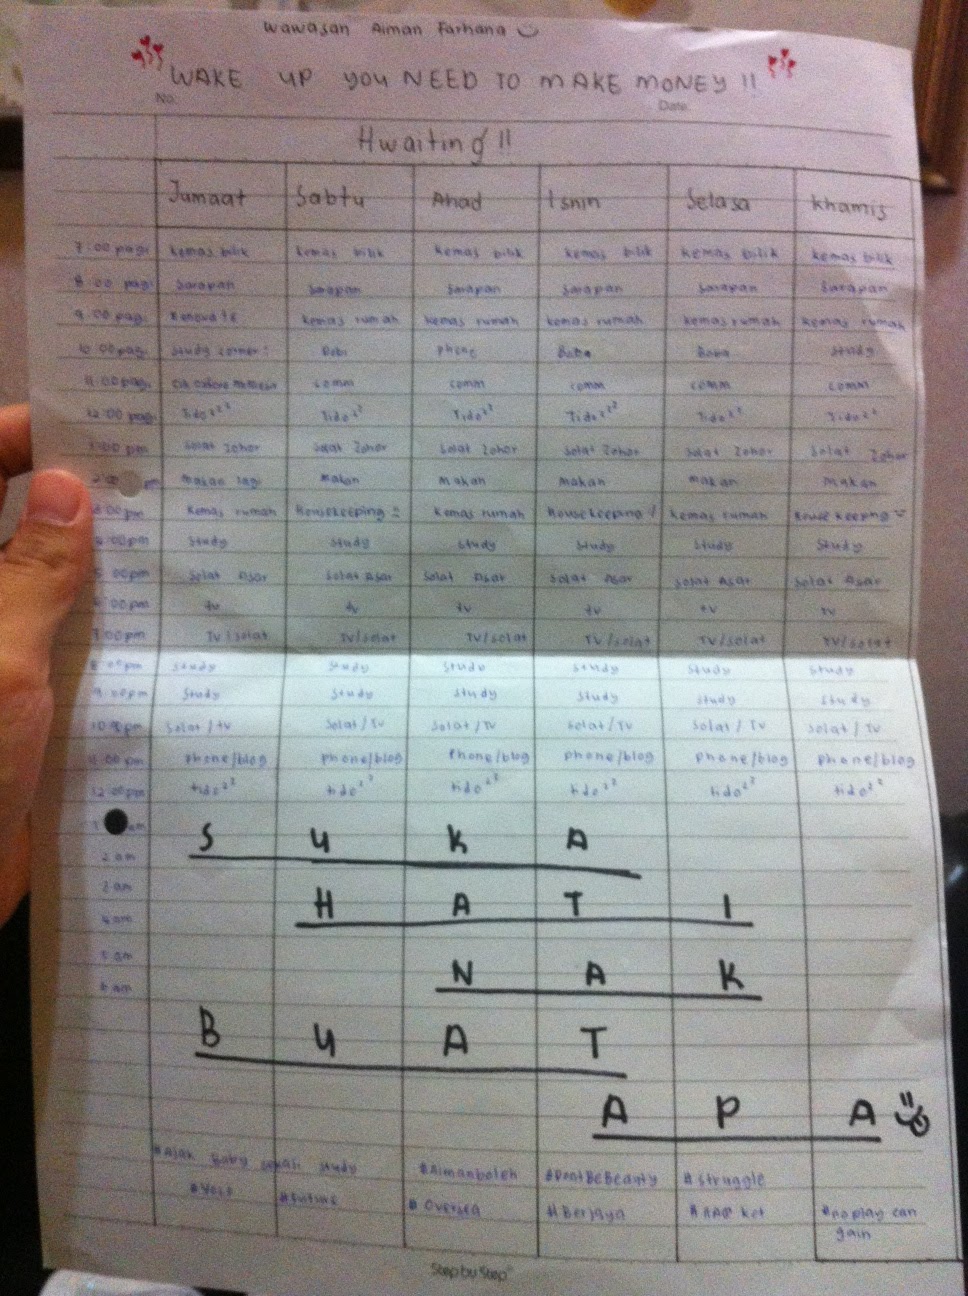 Wawasan Aiman Farhana
WAKE UP YOU NEED TO MAKE MONEY !!
No. Date.
Hwaiting !!
Jumaat Sabtu Ahad Isnin Selasa Khamis
7:00 pagi Kemas bilik Kemas bilik Kemas bilik Kemas bilik Kemas bilik Kemas bilik
8:00 pagi Sarapan Sarapan Sarapan Sarapan Sarapan Sarapan
9:00 pagi Renovate Kemas rumah Kemas rumah Kemas rumah Kemas rumah Kemas rumah
10:00 pagi study corner: phone Study
11:00 pagi comm comm comm comm comm
12:00 pagi Tido²²² Tido²² Tido²² Tido²²² Tido²² Tido²²
1:00 pm Solat Zohor Solat Zohor Solat Zohor Solat Zohor Solat Zohor Solat Zohor
2:00 pm makan lagi makan makan makan makan makan
3:00pm Kemas rumah Housekeeping Kemas rumah Housekeeping ! Kemas rumah House keeping
4:00pm Study Study Study Study Study Study
5:00pm Solat Asar Solat Asar Solat Asar Solat Asar Solat Asar Solat Asar
6:00pm tv tv tv tv tv tv
7:00pm TV/solat TV/solat TV/solat TV/solat TV/solat TV/solat
8:00pm study study study study study study
9:00pm Study Study Study Study Study Study
10:00pm Solat / tv Solat / TV Solat / TV Solat / TV Solat / TV Solat / TV
11:00 pm phone/blog phone/blog Phone/blog phone/blog phone/blog phone/blog
12:00pm tido²² tido²² tido²² tido²² tido²² tido²²
1 am
S U K A
2 am
3 am
H A T I
4 am
5 am
N A K
6 am
B U A T
A P A
Baby study #Aimanboleh #DontBeBeauty # Struggle
#Yolo #future # Oversea #Berjaya #noplay can
gain
Step by Step